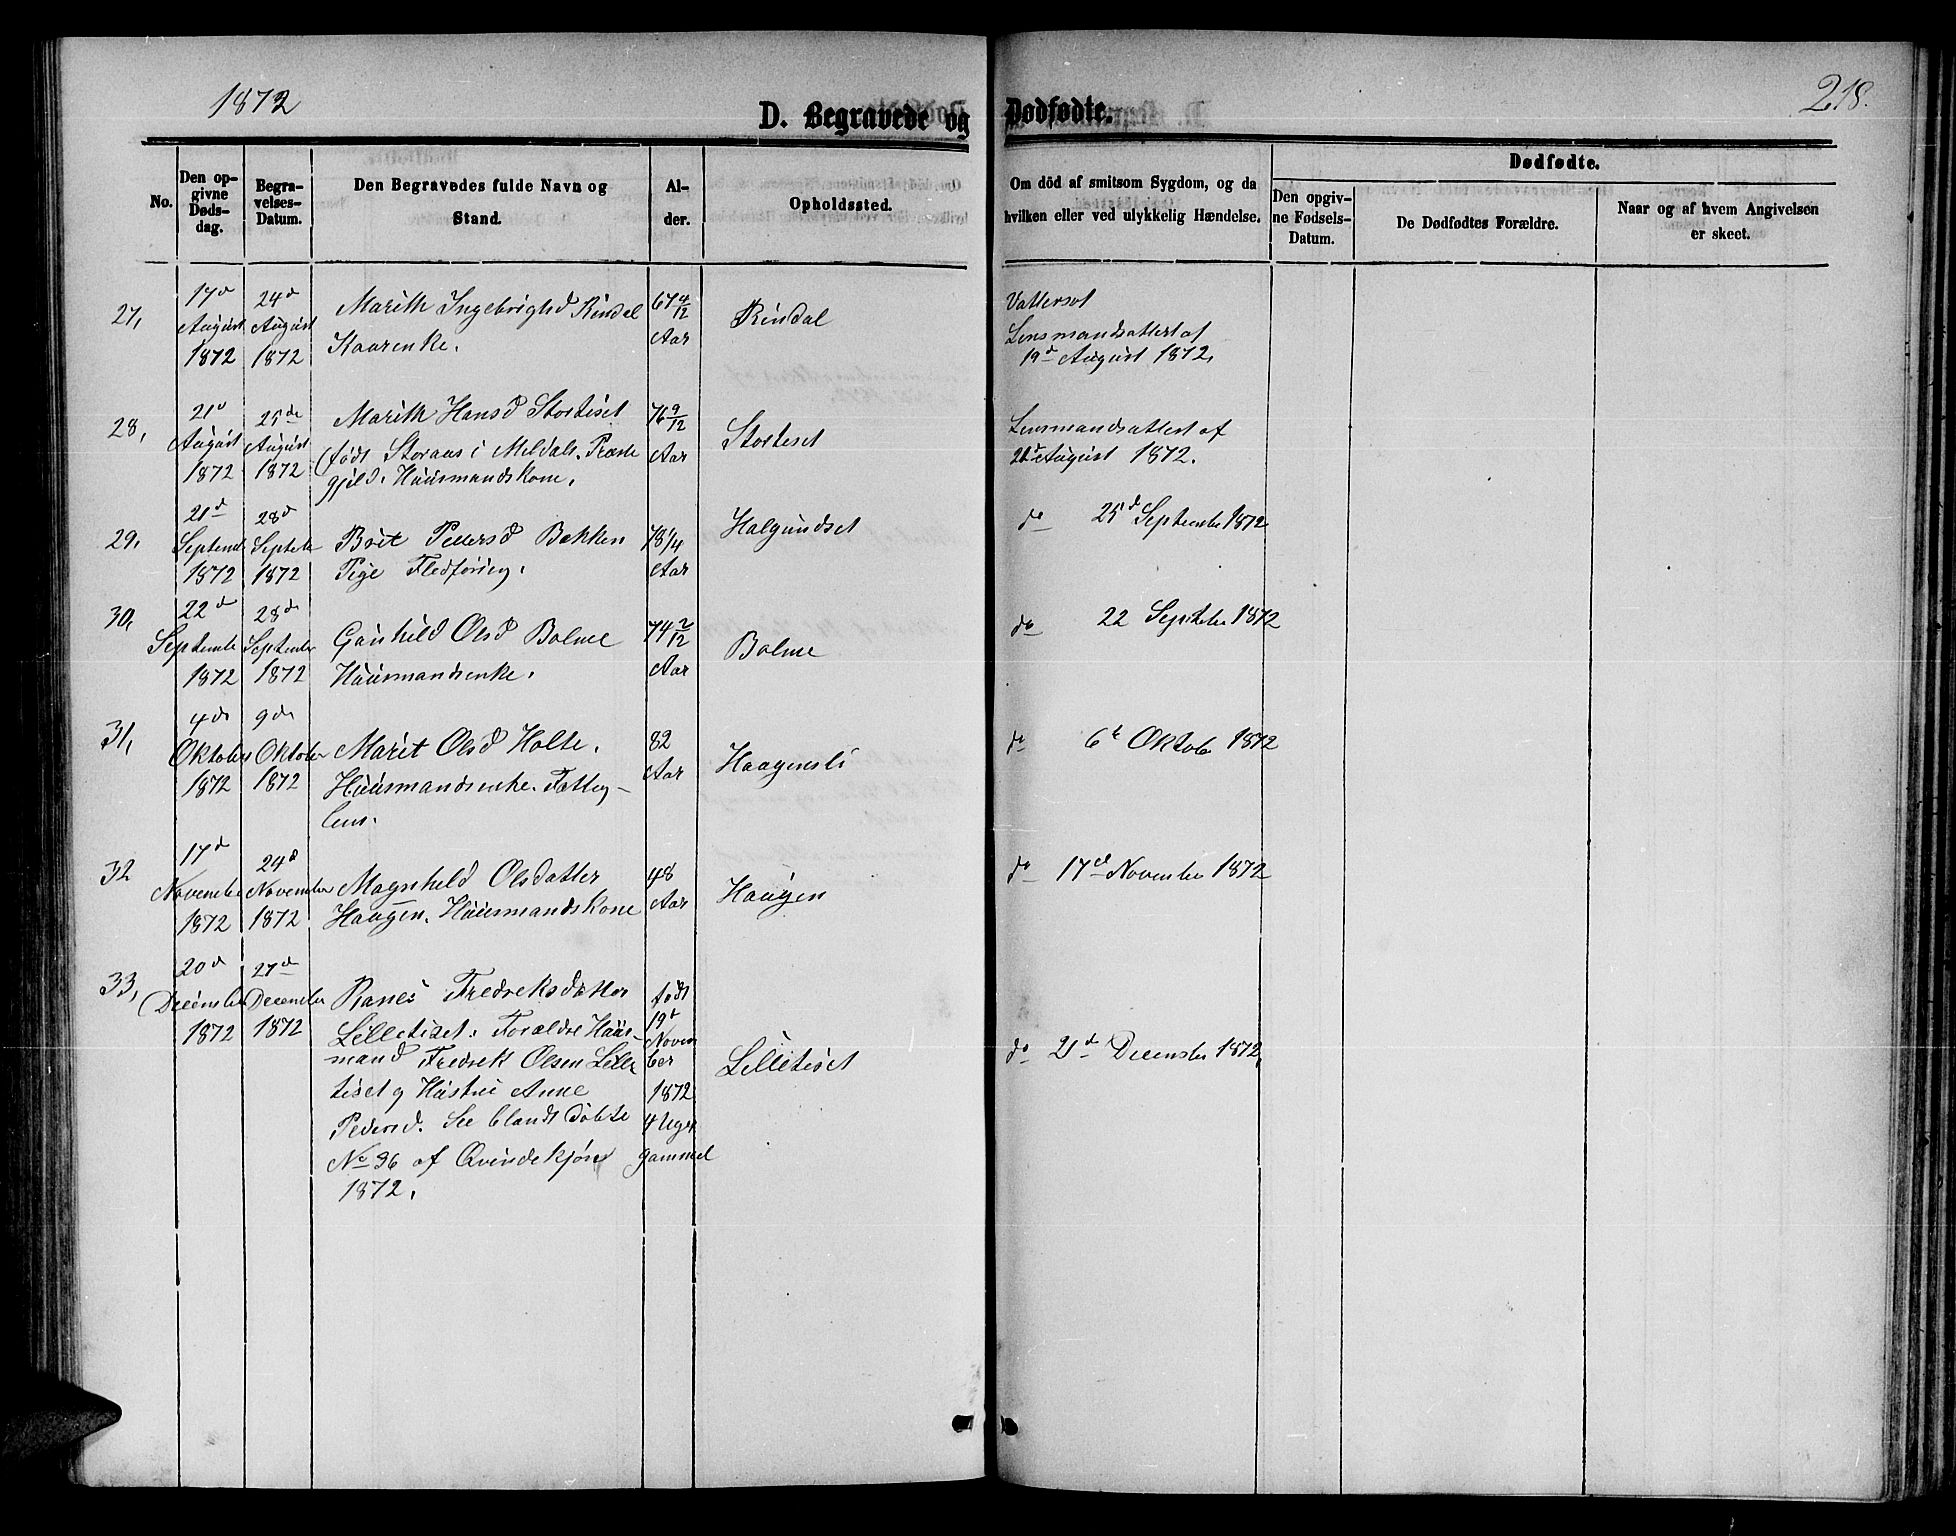 1872
218.
D. Begravede og Dødfødte.
No.
Den opgivne Dødsdag.
Begravelses-Datum.
Den Begravedes fulde Navn og Stand.
Alder.
Opholdssted.
Om död af smitsom Sygdom, og da hvilken eller ved ulykkelig Hændelse.
Dødfødte.
Den opgivne Fodsels-Datum.
De Dødfødtes Forældre.
Naar og af hvem Angivelsen er skeet.
27, 17d August 1872 24d August 1872
Marith Ingebrigtsd Rindal
Kaarenke.
67 4/12 Aar
Rindal
Vattersot
Lensmandsattest af
19d August 1872.
28, 21d August 1872 25de August 1872
Marith Hansd Stortiset
Født Storaas i Meldals Præste
gjeld. Huusmandskone.
76 9/12 Aar
Stortiset
Lensmandsattest af
21d August 1872.
29, 21d Septembe 1872 28d Septebe 1872
Brit Pedersd Bakken
Pige Fledføring.
78 1/4 Aar
Halgundset
do 25d September 1872
30, 22d Septembe 1872 28de September 1872
Gunhild Olsd Bolme
Huusmandsenke.
74 2/12 Aar
Bolme
do 22 Septebe 1872
31, 4de Oktober 1872 9de Oktober 1872
Marit Olsd Holte.
Huusmandsenke. Fattig-
lem.
82 Aar
Haagensli
do 6te Oktob 1872
32 17d November 1872 24d November 1872
Magnhild Olsdatter
Haugen. Huusmandskone
48 Aar
Haugen
do 17d November 1872
33, 20d December 1872 27de December 1872
Ranei Fredriksdatter
Lilletiset. Forældre Huus-
mand Fredrik Olsen Lille
tiset og Hustru Anne
Pedersd. See blandt Döbte
No 36 af Qvindekjøn
1872.
født
19d
Novem
ber
1872
4 Uger
gammel
Lilletiset
do 21d December 1872,